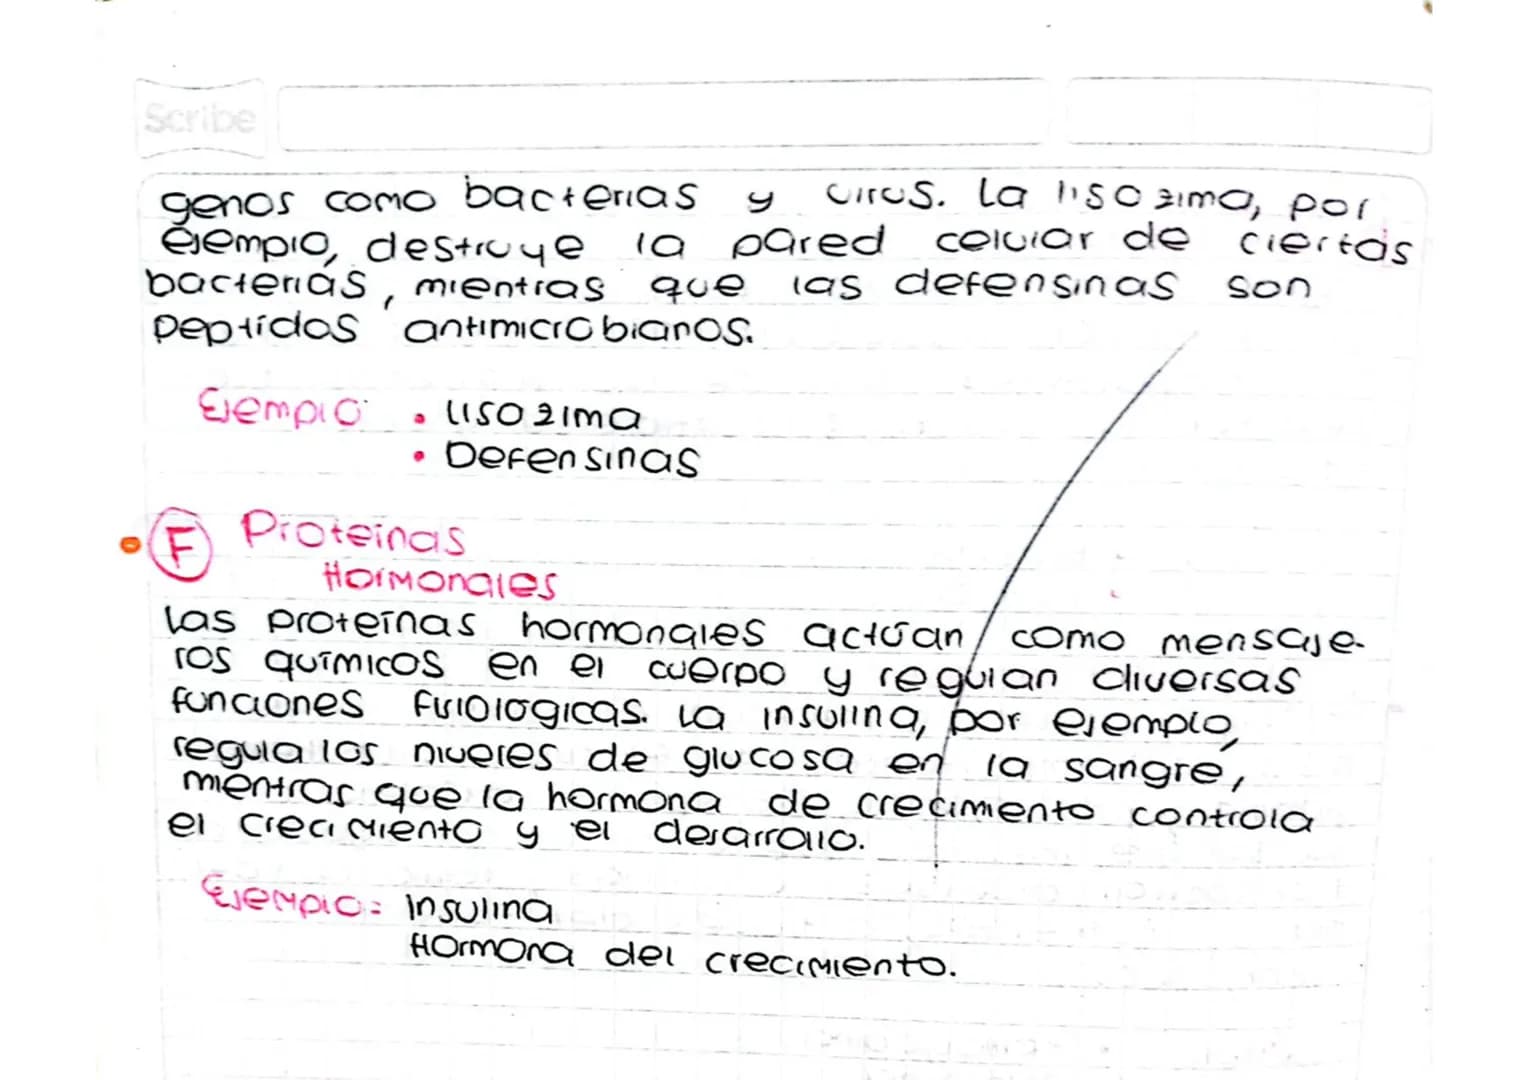 Scribe
genos como bacterias y virus. La lisozima, por
ejemplo, destruye la pared celular de ciertas
bacterias, mientras que las defensinas son
peptídos antimicrobianos.
Ejemplo: • Lisozima
• Defensinas
• F Proteínas
Hormonales
Las proteínas hormonales actúan como mensaje-
ros químicos en el cuerpo y regulan diversas
funciones fisiologicas. La insulina, por ejemplo,
regula los niveles de glucosa en la sangre,
mientras que la hormona de crecimiento controla
el crecimiento y el desarrollo.
Ejemplo: Insulina
Hormona del crecimiento.